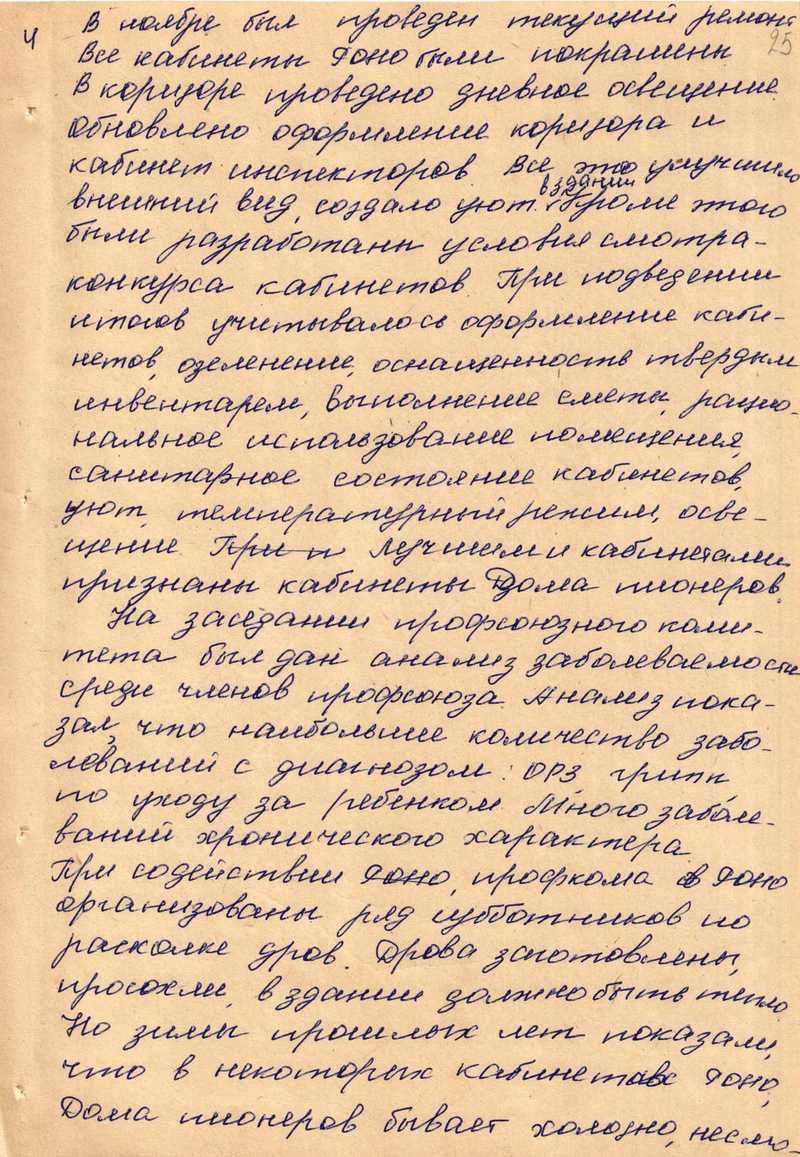 4
25
В ноябре был проведен текущий ремонт
Все кабинеты Гоно были покрашены
В коридоре проведено дневное освещение
Обновлено оформление коридора и
кабинет инспекторов Все это улучшило
внешний вид, создало уют в здании. Кроме этого
были разработаны условия смотра-
конкурса кабинетов При подведении
итогов учитывалось оформление каби-
нетов, озеленение, оснащенность твердым
инвентарем, выполнение сметы, рацио-
нальное использование помещения,
санитарное состояние кабинетов,
уют, температурный режим, осве-
щение При п Лучшими кабинетами
признаны кабинеты Дома пионеров.
На заседании профсоюзного коми-
тета был дан анализ заболеваемости
среди членов профсоюза. Анализ пока-
зал, что наибольшее количество забо-
леваний с диагнозом: ОРЗ грипп,
по уходу за ребенком Много заболе-
ваний хронического характера
При содействии Гоно, профкома в Гоно
организованы ряд субботников по
расколке дров. Дрова заготовлены,
просохли, в здании должно быть тепло
Но зимы прошлых лет показали,
что в некоторых кабинетах Гоно,
Дома пионеров бывает холодно, несмо-